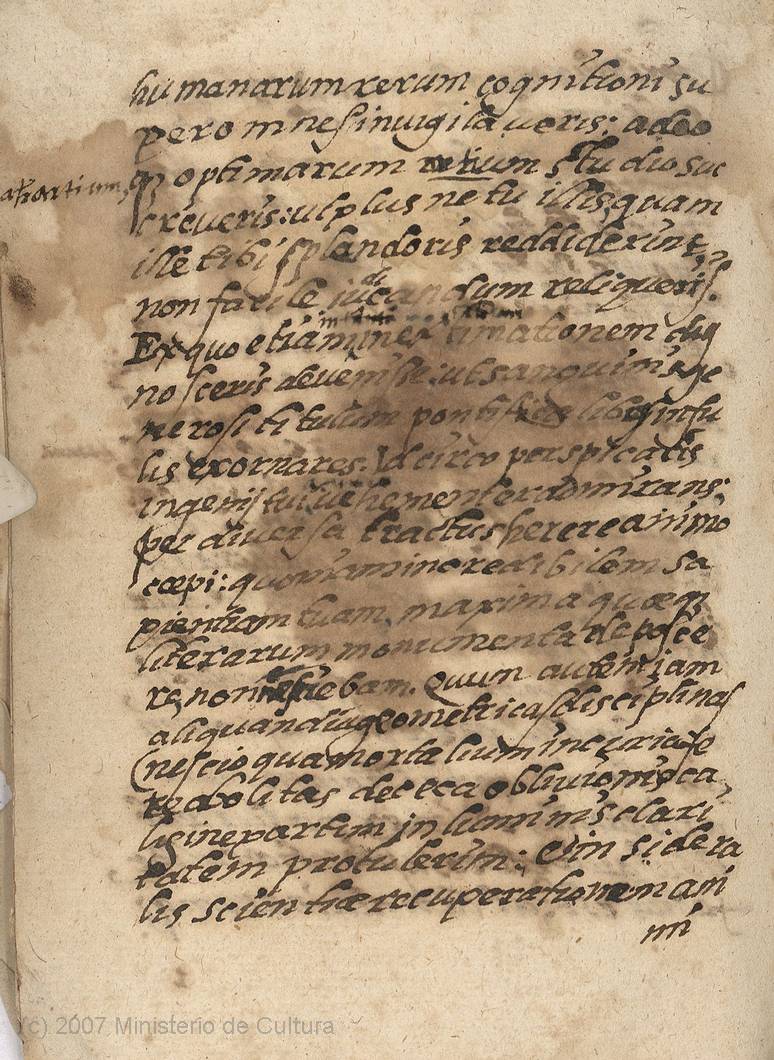 humanarum rerum cognitioni su
per omnes invigilaveris: adeo
al's artium,
q3 optimarum rerum studio suc
creveris: ut plus ne tu illis, quam
ille tibi splandoris reddiderint,
di
non facile iucandum reliqueris.
Ex quo etiam in extimationem dig
nosceris devenisse: ut sanguinis ge
nerosi titulum pontificis infu
lis exornares. Idcirco perspicatis
ingenij tui vehementer admirans:
per diversa tractus herere animo
cœpi: quoniam incredibilem sa
pientiam tuam, maxima quæq3
literarum monumenta deposce
re, non nesciebam. Quum autem iam
aliquandiu geometricas disciplinas
(nescio qua mortalium incuria) fe
re abolitas de ceca oblivionis ca,
ligine partim in luminis clari
tatem protulerim: ein sidera
lis scientiæ recuperationem ani
mi
(c) 2007 Ministerio de Cultura